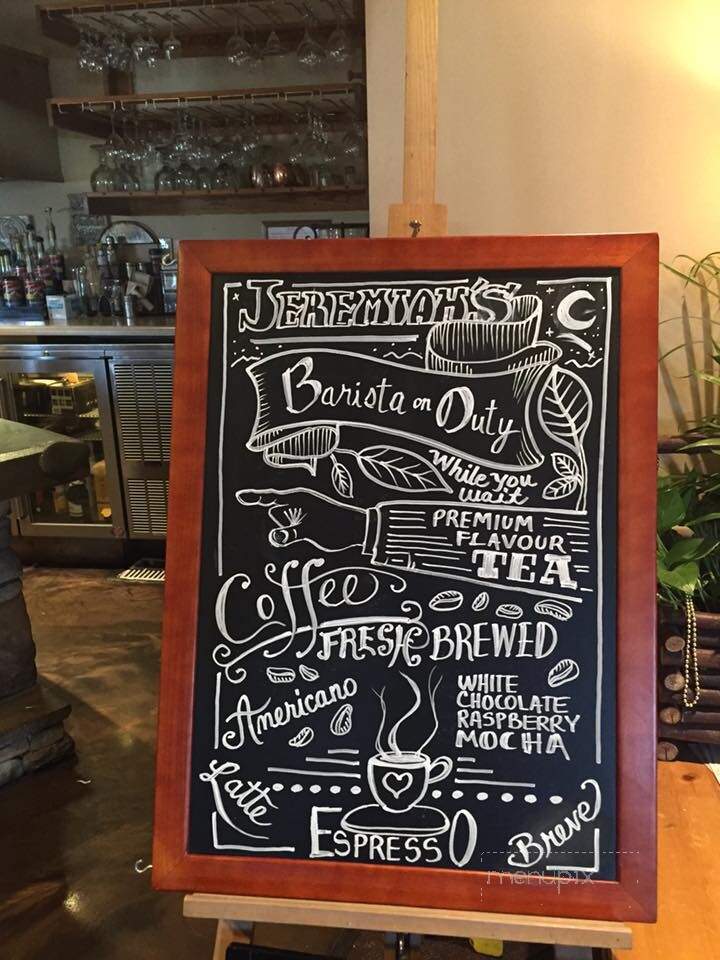 JEREMIAH'S
Barista on Duty
While you
wait
PREMIUM
FLAVOUR
TEA
Coffee
FRESH BREWED
Americano
WHITE
CHOCOLATE
RASPBERRY
MOCHA
Latte
ESPRESSO
Breve
menupix